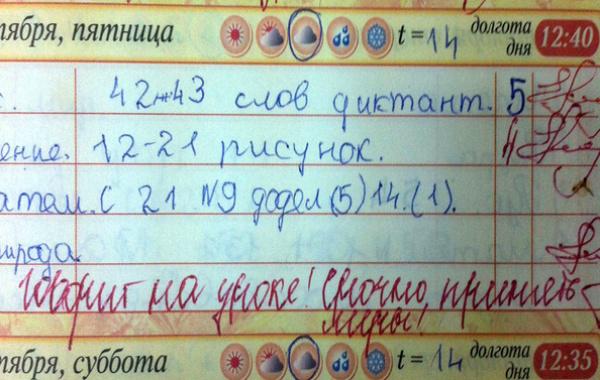 тября, пятница t = 14 долгота дня 12:40
с. 42-43 слов диктант. 5
ение. 12-21 рисунок. 4
атем. С 21 №9 додел (5) 14. (1).
природа
Говорит на уроке! Срочно примете
меры!
тября, суббота t = 14 долгота дня 12:35